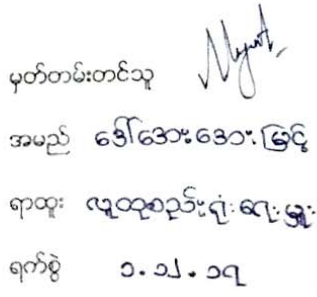 မှတ်တမ်းတင်သူ
အမည် ဒေါ်အေးအေးမြင့်
ရာထူး လူထုစည်းရုံးရေးမှူး
ရက်စွဲ ၁.၁၂.၁၇